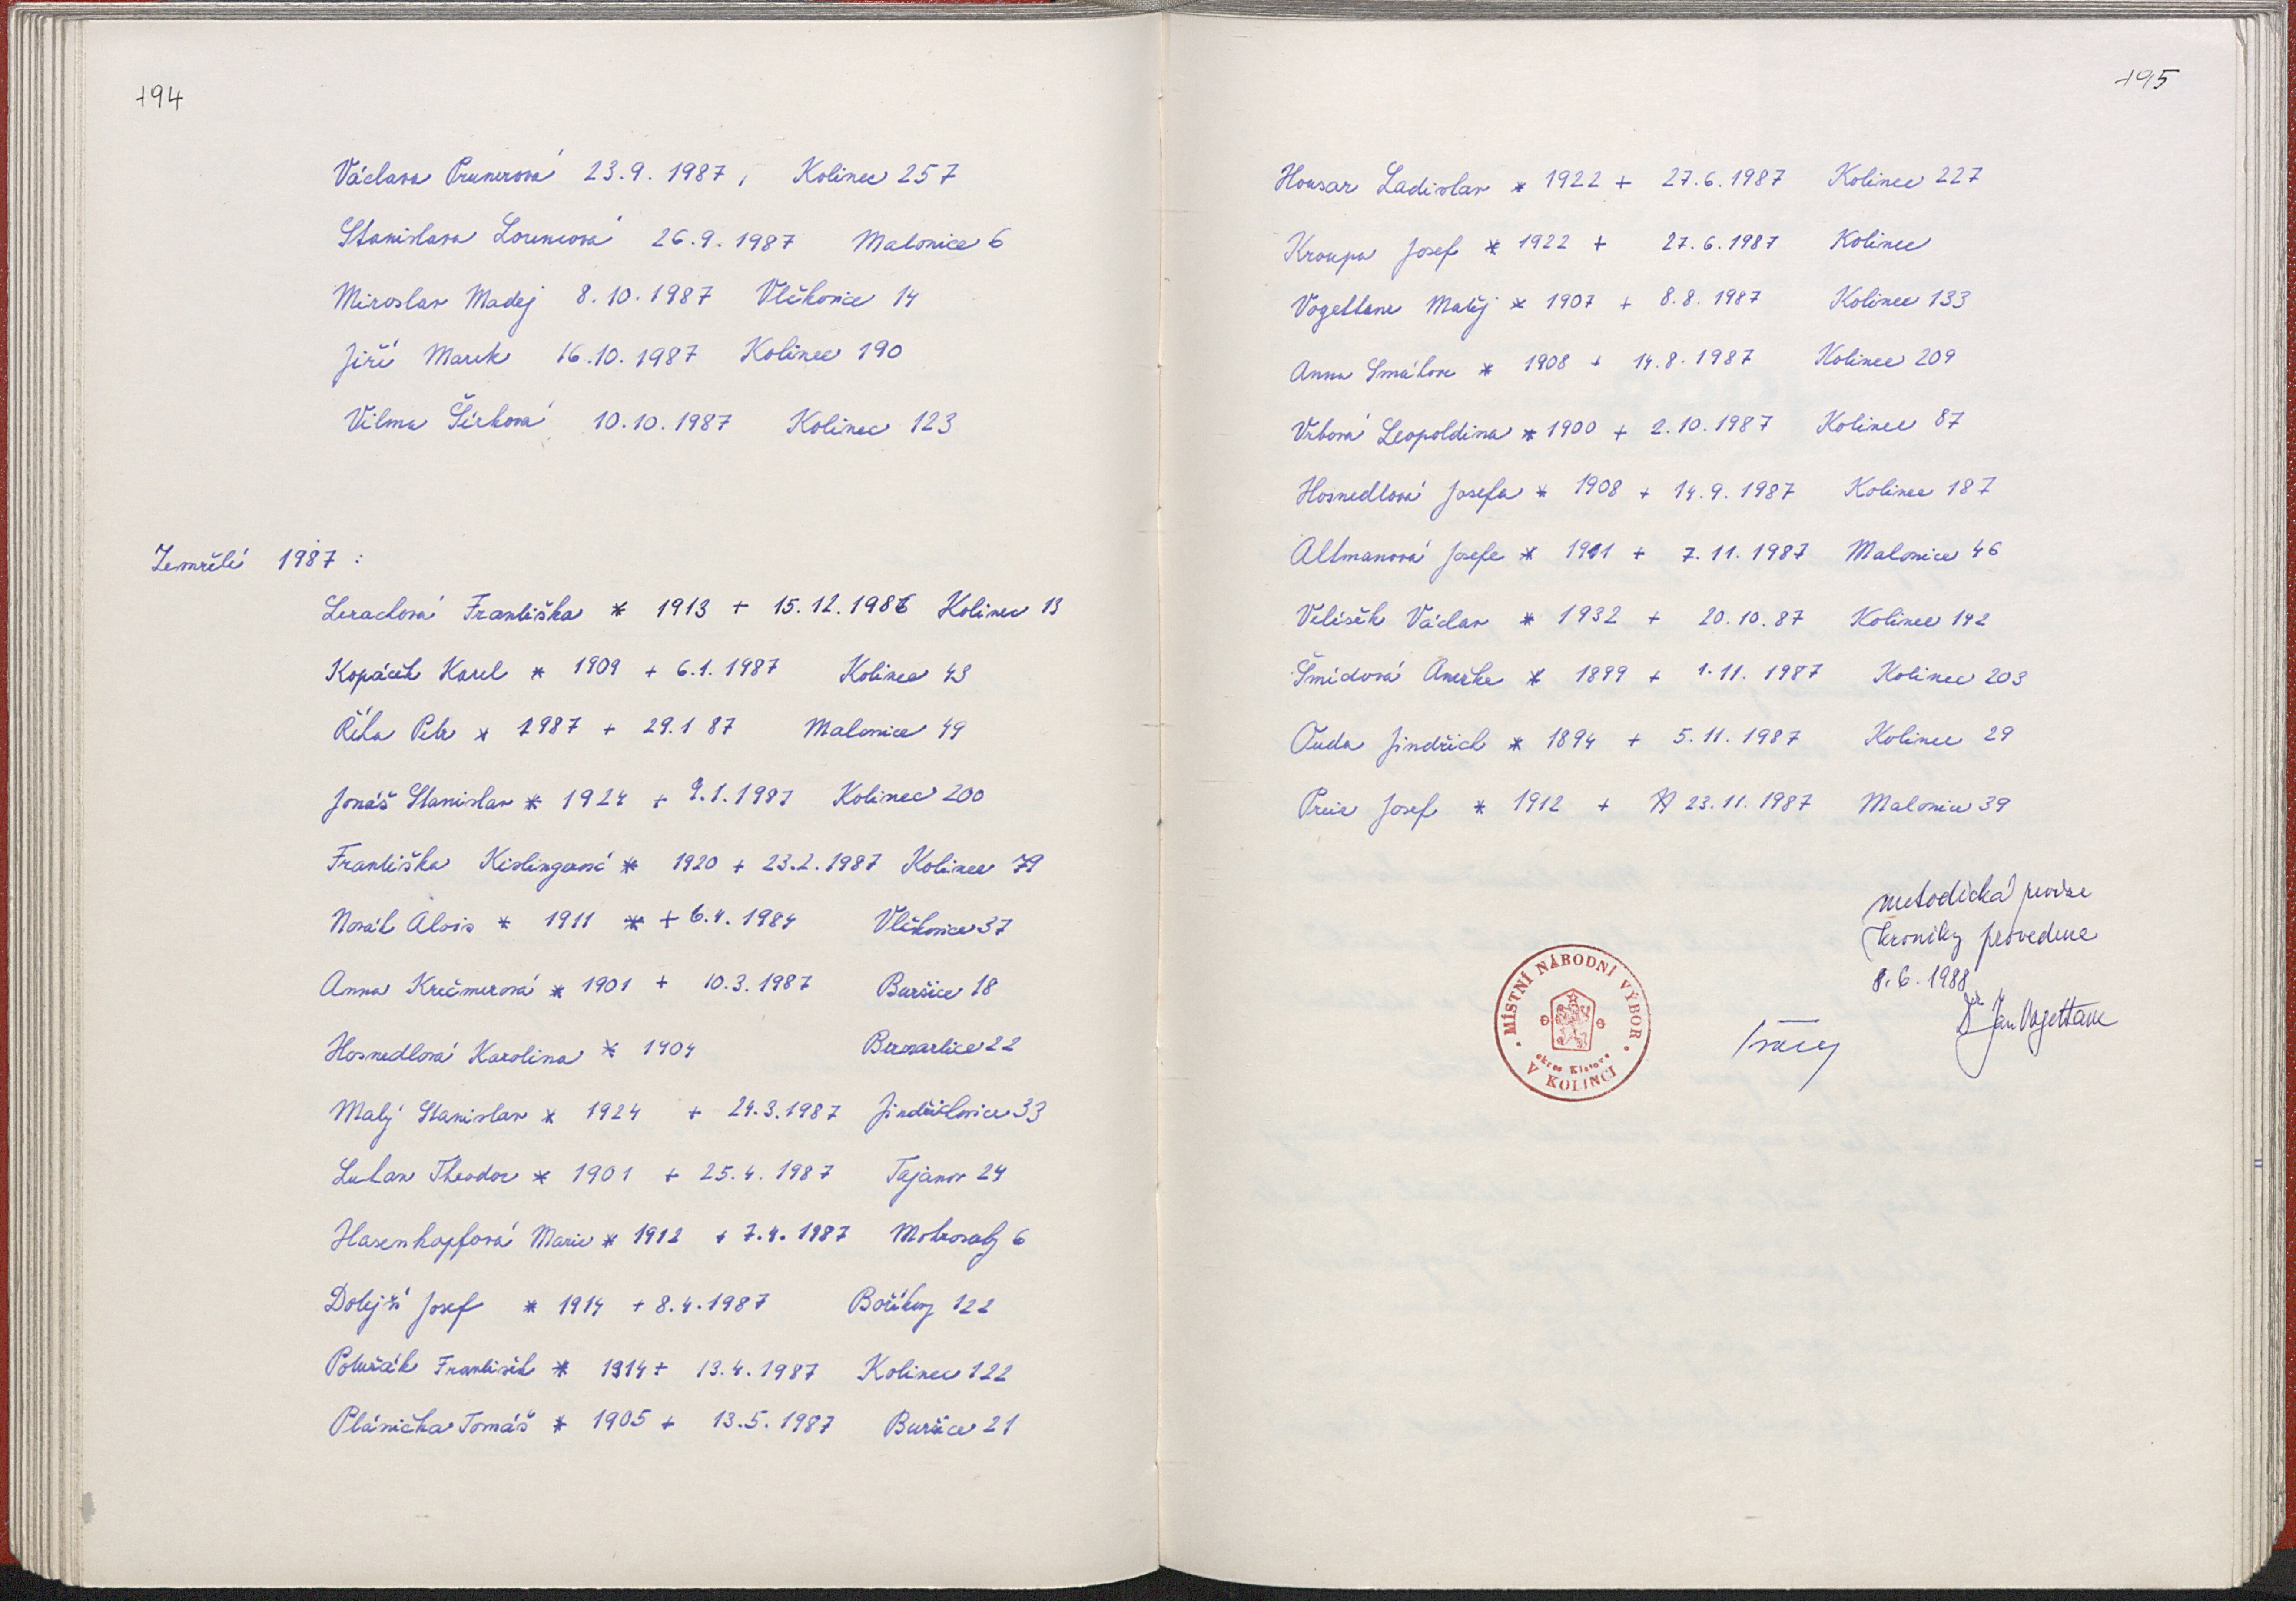 194
Václava Prunerová 23.9.1987, Kolinec 257
Stanislava Lorencová 26.9.1987 Malonice 6
Miroslav Madej 8.10.1987 Vlčkovice 14
Jiří Marek 16.10.1987 Kolinec 190
Vilma Šírková 10.10.1987 Kolinec 123
Zemřelí 1987 :
Františka * 1913 + 15.12.1986 Kolinec 13
Kopáček Karel * 1909 + 6.1.1987 Kolinec 43
Říha Petr * 1987 + 29.1 87 Malonice 49
Jonáš Stanislav * 1924 + 9.1.1987 Kolinec 200
Františka Kislingerová * 1920 + 23.2.1987 Kolinec 79
Novák Alois * 1911 * + 6.4.1984 Vlčkovice 37
Anna Krečmerová * 1901 + 10.3.1987 Buršice 18
Hosnedlová Karolina * 1904 Bernartice 22
Malý Stanislav * 1924 + 24.3.1987 Jindřichovice 33
Luhan Theodor * 1901 + 25.4.1987 Tajanov 24
Hasenkopfová Marie * 1912 + 7.4.1987 Mokrosuky 6
Dolejší Josef * 1914 + 8.4.1987 Boříkovy 122
František * 1914 + 13.4.1987 Kolinec 122
Plánička Tomáš * 1905 + 13.5.1987 Buršice 21
195
Housar Ladislav * 1922 + 27.6.1987 Kolinec 227
Kroupa Josef * 1922 + 27.6.1987 Kolinec
Vogeltanz Matěj * 1907 + 8.8.1987 Kolinec 133
Anna * 1908 + 14.8.1987 Kolinec 209
Vrbová Leopoldina * 1900 + 2.10.1987 Kolinec 87
Hosnedlová Josefa * 1908 + 14.9.1987 Kolinec 187
Altmanová Josefa * 1911 + 7.11.1987 Malonice 46
Velíšek Václav * 1932 + 20.10.87 Kolinec 142
Šmídová Anežka * 1899 + 1.11.1987 Kolinec 203
Duda Jindřich * 1894 + 5.11.1987 Kolinec 29
Josef * 1912 + 23.11.1987 Malonice 39
metodická revize
kroniky provedena
8.6.1988
Dr Jan Vogeltanz
MÍSTNÍ NÁRODNÍ VÝBOR
okres Klatovy
V KOLINCI